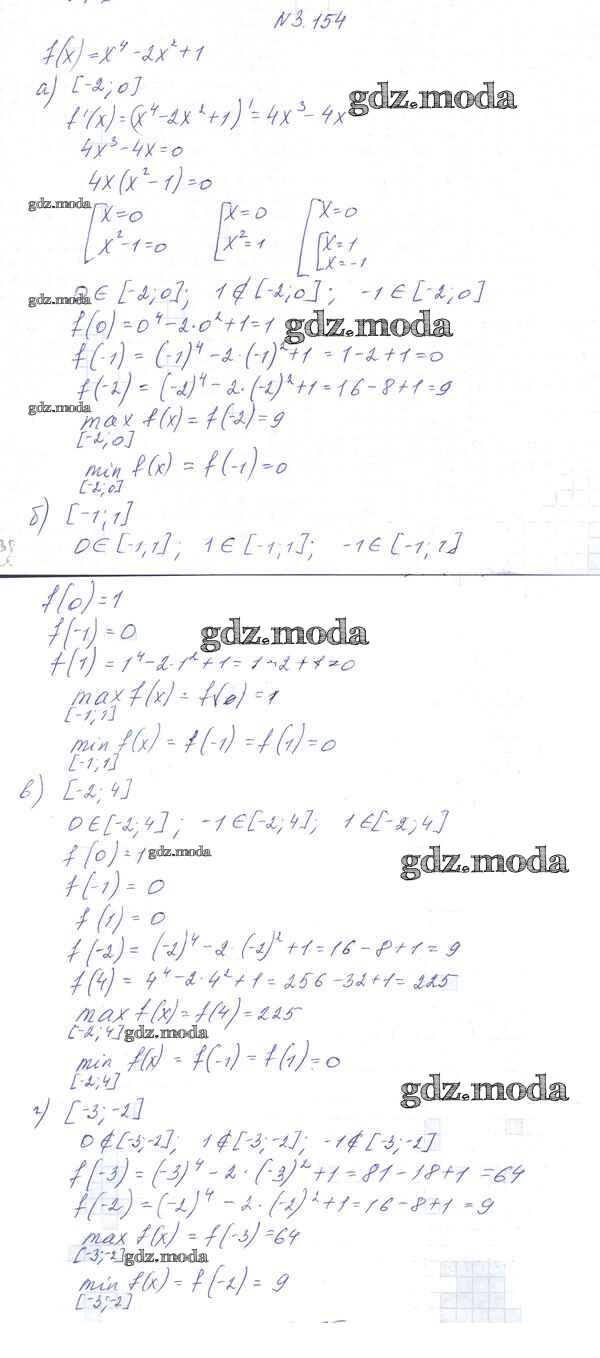 N3.154
f(x)=x⁴-2x²+1
а) [-2;0]
f'(x)=(x⁴-2x²+1)'=4x³-4x
gdz.moda
4x³-4x=0
4x(x²-1)=0
gdz.moda
[x=0 x²-1=0 [x=0 x²=1 [x=0 [x=1 x=-1
gdz.moda
0∈[-2;0]; 1∉[-2;0]; -1∈[-2;0]
f(0)=0⁴-2·0²+1=1
gdz.moda
f(-1)=(-1)⁴-2·(-1)²+1=1-2+1=0
f(-2)=(-2)⁴-2·(-2)²+1=16-8+1=9
gdz.moda
max f(x)=f(-2)=9
[-2;0]
min f(x)=f(-1)=0
[-2;0]
б) [-1;1]
0∈[-1;1]; 1∈[-1;1]; -1∈[-1;1]
f(0)=1
f(-1)=0
gdz.moda
f(1)=1⁴-2·1²+1=1-2+1=0
max f(x)=f(0)=1
[-1;1]
min f(x)=f(-1)=f(1)=0
[-1;1]
в) [-2;4]
0∈[-2;4]; -1∈[-2;4]; 1∈[-2;4]
f(0)=1
gdz.moda
gdz.moda
f(-1)=0
f(1)=0
f(-2)=(-2)⁴-2·(-2)²+1=16-8+1=9
f(4)=4⁴-2·4²+1=256-32+1=225
max f(x)=f(4)=225
[-2;4]
gdz.moda
min f(x)=f(-1)=f(1)=0
[-2;4]
gdz.moda
г) [-3;-2]
0∉[-3;-2]; 1∉[-3;-2]; -1∉[-3;-2]
f(-3)=(-3)⁴-2·(-3)²+1=81-18+1=64
f(-2)=(-2)⁴-2·(-2)²+1=16-8+1=9
max f(x)=f(-3)=64
[-3;-2]
gdz.moda
min f(x)=f(-2)=9
[-3;-2]